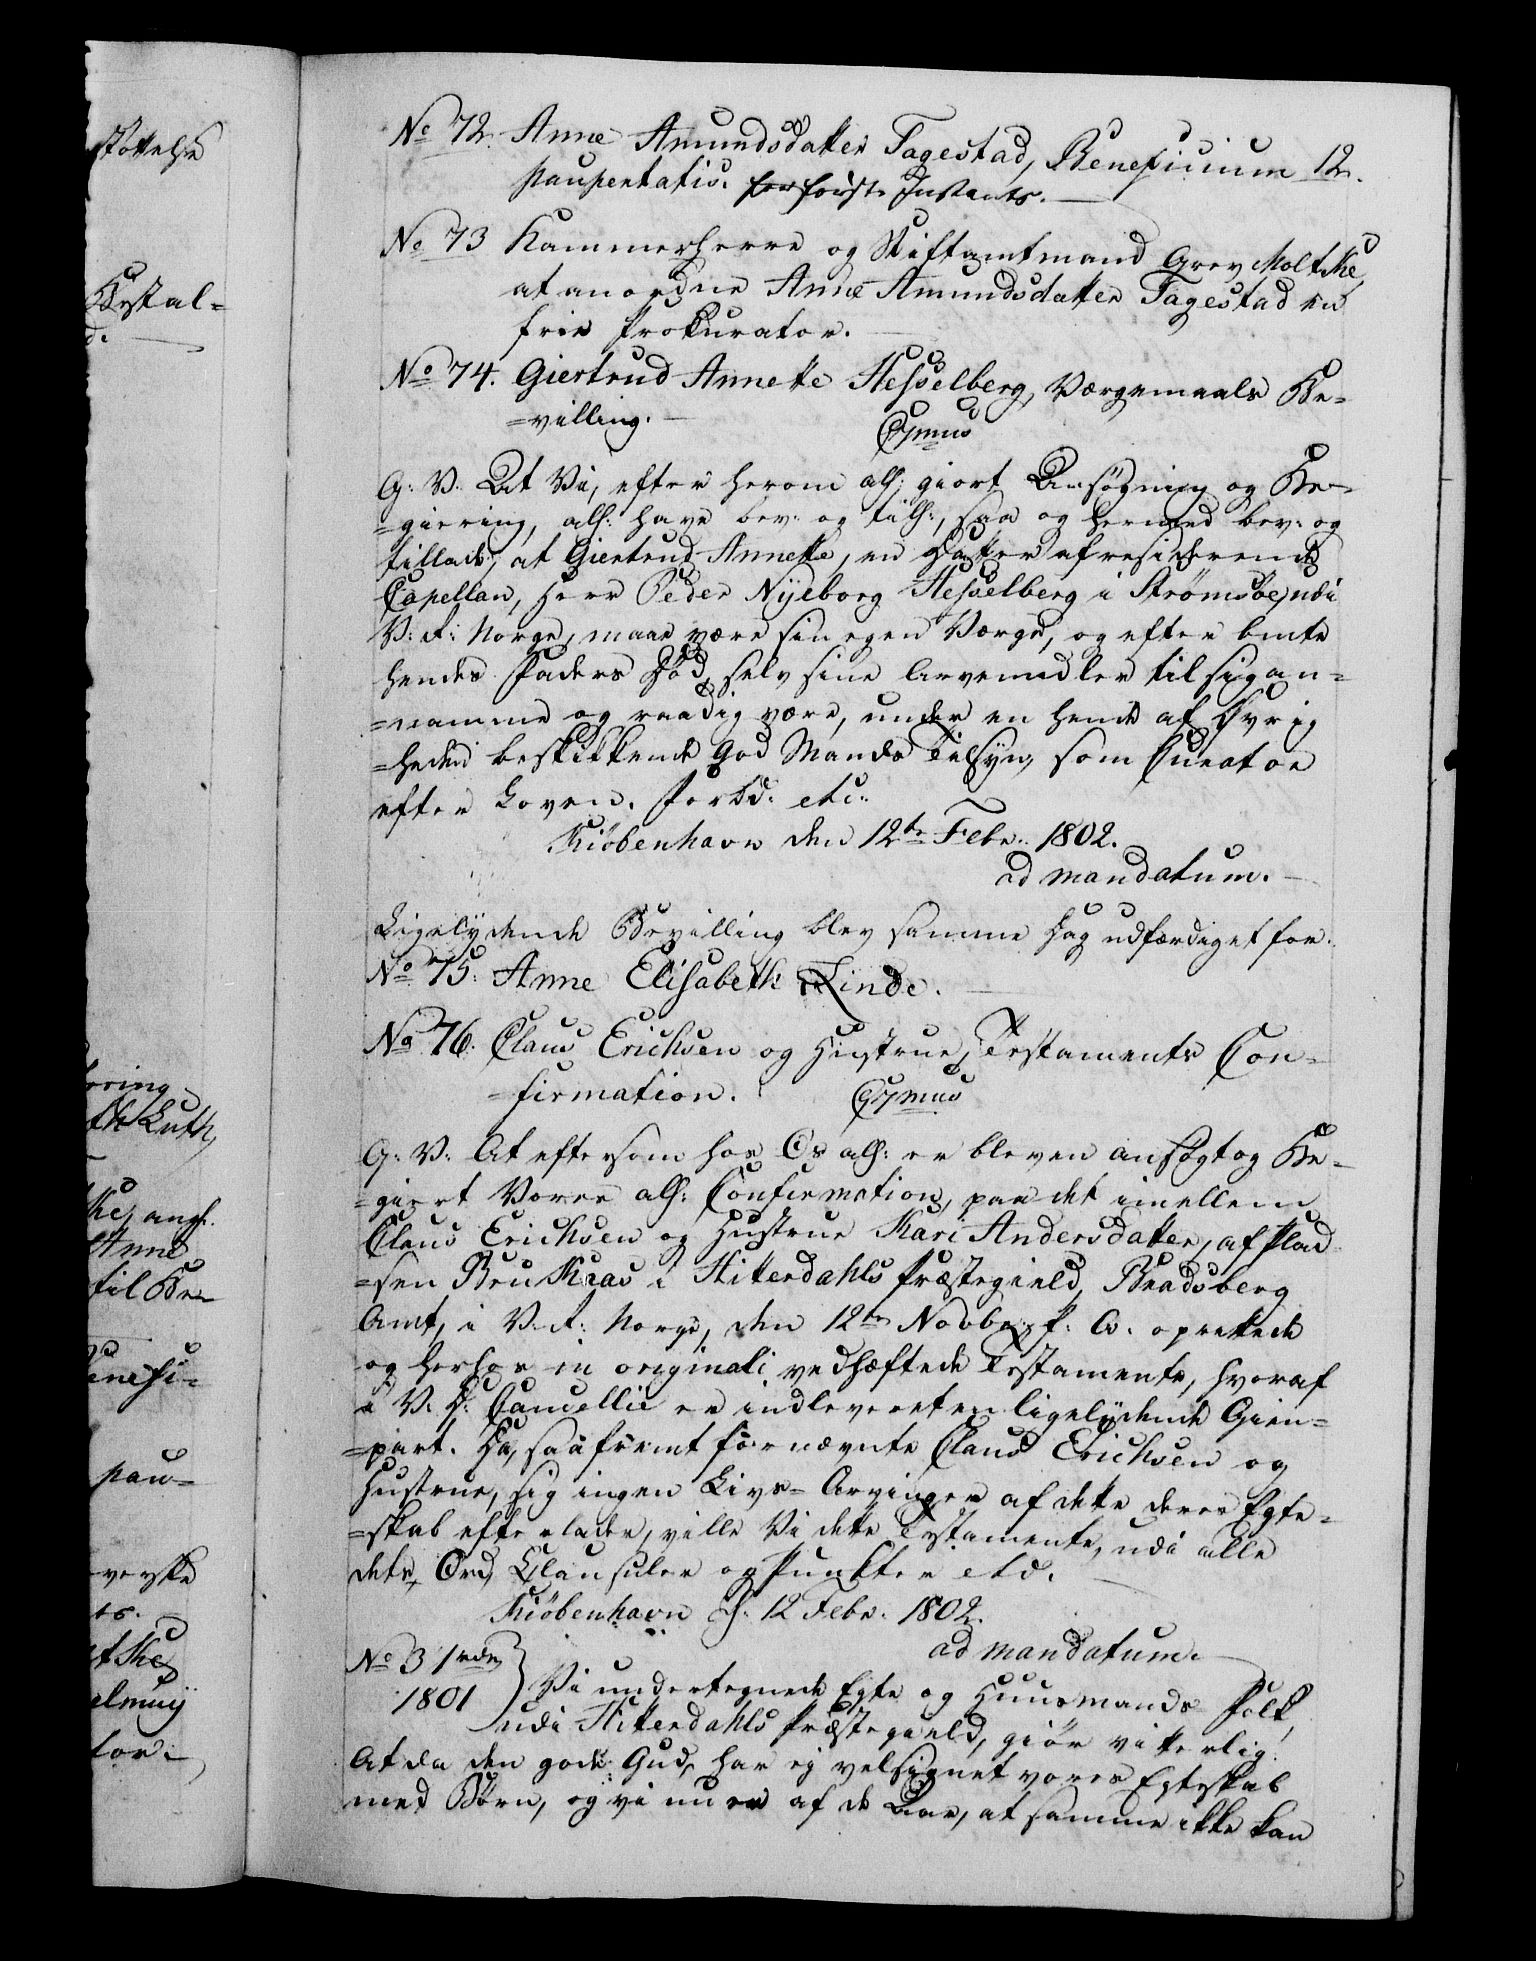 No 72. Anne Amundsdatter Fagestad, Beneficium 12.
paupertatis. for første Instants.
No 73 Kammerherre og Stiftamtmand Grev Moltke,
at anordne Anne Amundsdatter Fagestad en
frie Prokurator.
No 74. Giertrud Annette Hesselberg, Værgemaals Be-
=villing.
C7mus
G: V: At Vi, efter herom all: giort Ansøgning og Be-
=giering, all: have bev: og till:, saa og hermed bev: og
tillade, at Giertrud Annette, en Datter af residerende
Capellan, Herr Peder Nyeborg Hesselberg i Strømsøe, udi
V: R: Norge, maae være sin egen Værge, og efter bmte
hendes Faders Død, selv sine Arvemidler til sig an-
=namme og raadig være, under en hende af Øvrig
=heden beskikkende God Mands Tilsyn, som Curator
efter Loven. Forbd: etc:
Kiöbenhavn den 12te Febr: 1802.
ad mandatum.
Ligelydende Bevilling blev samme Dag udfærdiget for.
No 75. Anne Elisabeth Linde.
No 76. Claus Erichsen og Hustrue, Testaments Con-
=firmation.
C7mus
G: V: At eftersom hos Os all: er bleven ansøgt og Be-
=giert Vores all: Confirmation, paa det imellem
Claus Erichsen og Hustrue Kari Andersdatter, af Plad
=sen Bru Kaas i Hitterdahls Præstegield, Bradsberg
Amt, i V. R: Norge, den 12te Novbr: f: A: oprettede
og herhos in originali vedhæftede Testamente, hvoraf
i V: D: Cancellie er indleveret en ligelydende Gien-
=part. Da, saafremt fornævnte Claus Erichsen og
Hustrue, sig ingen Livs-Arvinger af dette deres Egte-
=skab efterlader, ville Vi dette Testamente, udi alle
dets Ord, Clausuler og Punkter etc.
Kiöbenhavn d: 12 Febr: 1802.
ad mandatum.
No 3 1rdlr
1801
Vi undertegnede Egte og Huusmands Folk
udi Hitterdahls Præstegield, giör vitterlig:
At da den gode Gud, har ej velsignet vores Egteskab
med Børn, og vi nu er af de Aar, at samme ikke kan
støttelse
Bestal=
d.
oring
th Luth,
ke, ang.
Anne
til Be-
enefi-
pau-
verste
ts.
tke,
elmuy
for-